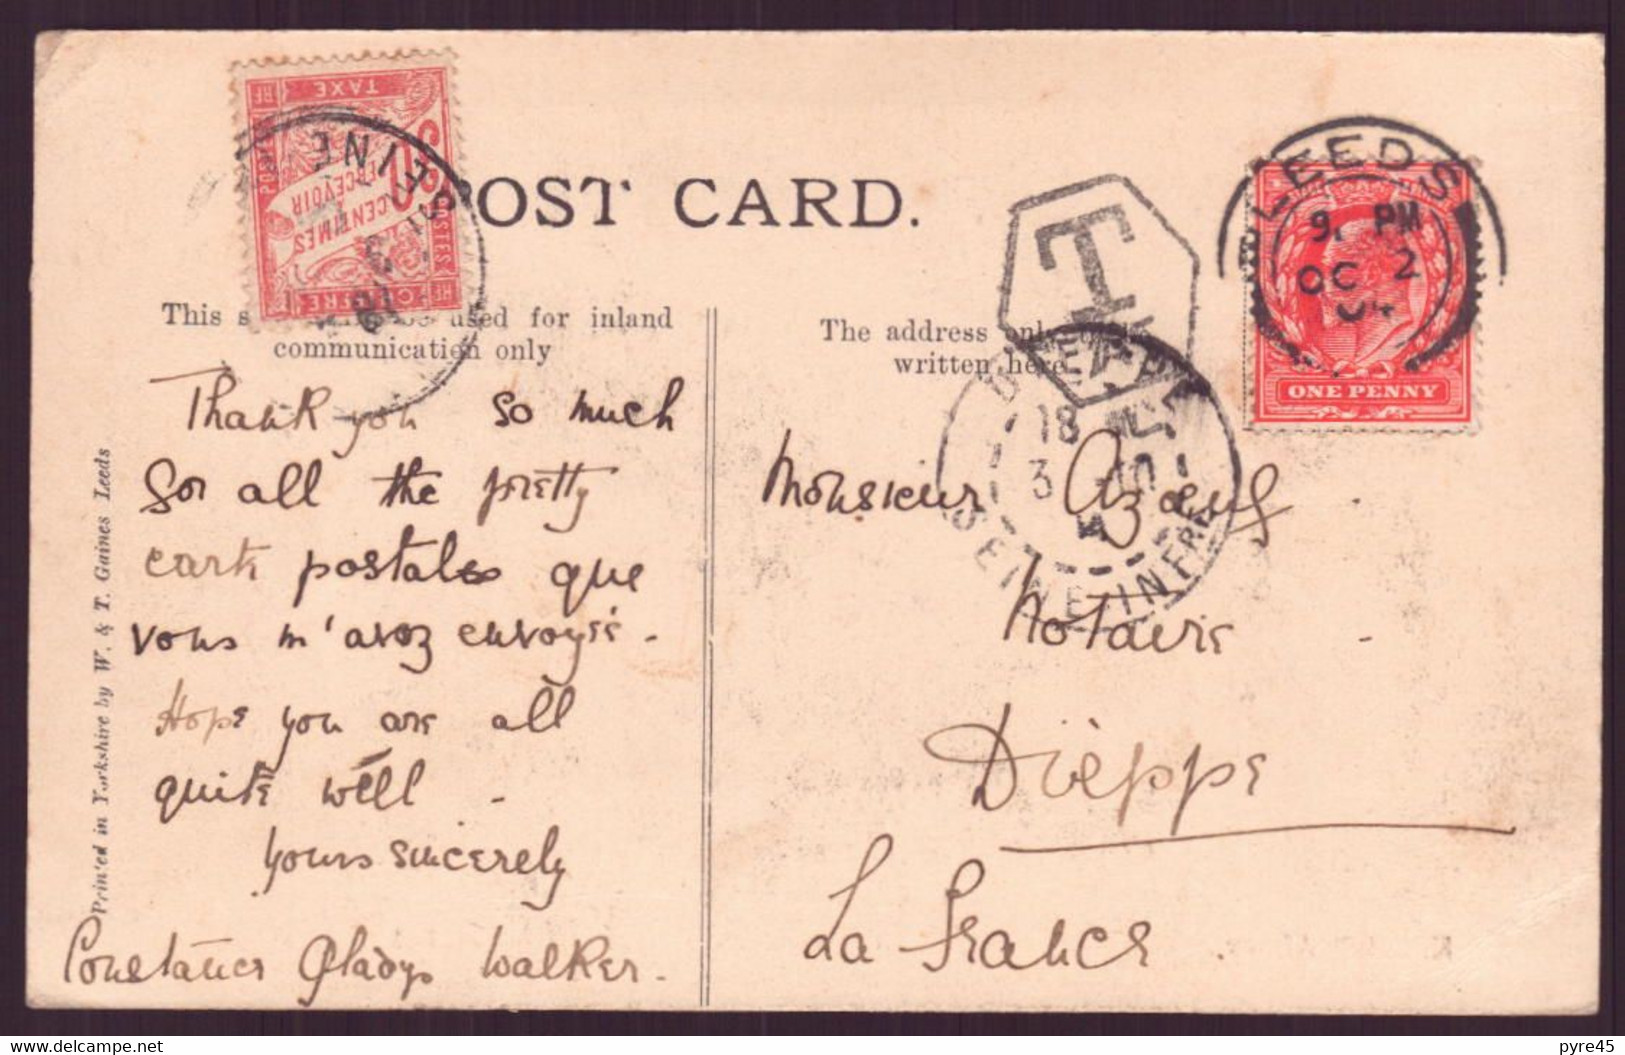 TAXE
POSTES
CENTIMES
PERCEVOIR
CHIFFRE
SEINE
POST CARD.
T
LEEDS
9. PM
OC 2
04
ONE PENNY
This s used for inland
communication only
The address only
written here
DIEPPE
18
3
SEINE-INFRE
Thank you so much
for all the pretty
carte postales que
vous m'avez envoyée.
Hope you are all
quite well -
Yours sincerely
Constance Gladys Walker.
Monsieur
Notaire
Dièppe
La France
Printed in Yorkshire by W. & T. Gaines Leeds
pyre45